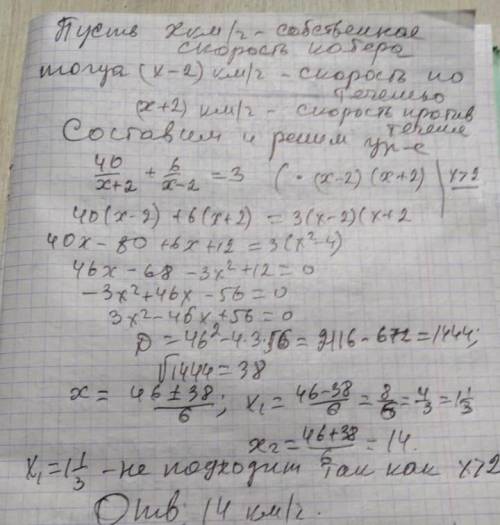 Пусть x км/г - собственная
скорость катера
тогда (x-2) км/г - скорость по
течению
(x+2) км/г - скорость против
течения
Составим и решим ур-е
40/(x+2) + 6/(x-2) = 3 (· (x-2)(x+2) | x>2
40(x-2) + 6(x+2) = 3(x-2)(x+2
40x - 80 + 6x + 12 = 3(x²-4)
46x - 68 - 3x² + 12 = 0
-3x² + 46x - 56 = 0
3x² - 46x + 56 = 0
D = 46² - 4·3·56 = 2116 - 672 = 1444;
√1444 = 38
x = (46 ± 38)/6; x₁ = (46-38)/6 = 8/6 = 4/3 = 1 1/3
x₂ = (46+38)/6 = 14.
x₁ = 1 1/3 - не подходит так как x>2
Отв: 14 км/г.